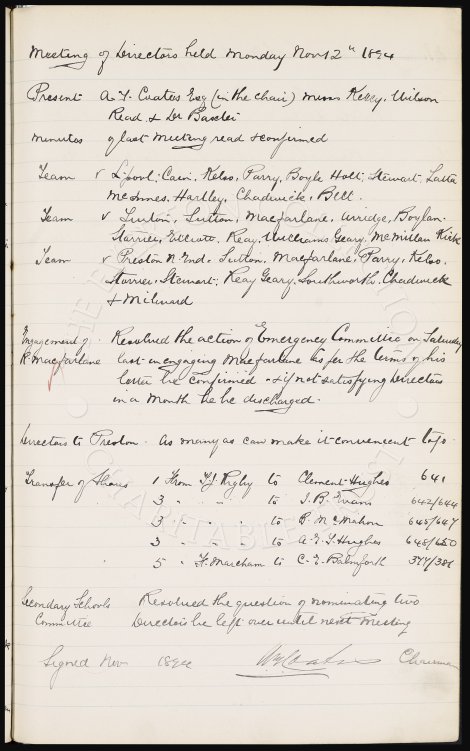 Meeting of Directors held Monday Nov 12th 1894
Present A. T. Coates Esq (in the chair) Messrs Kelly, Wilson
Read & Dr Baxter
Minutes of last Meeting read & confirmed
Team v L'pool; Cain, Kelso, Parry, Boyle Holt, Stewart, Latta
McInnes, Hartley, Chadwick, Bell.
Team v Luton, Sutton, Macfarlane, Arridge, Boylan
Storrier, Elliott, Reay, Williams Geary, McMillan Kirk
Team v Preston N. End. Sutton, Macfarlane, Parry, Kelso,
Storrier, Stewart; Reay Geary, Southworth, Chadwick
& Milward
Engagement of Resolved the action of Emergency Committee on Saturday
R. Macfarlane last in engaging Macfarlane as per the terms of his
letter be confirmed & if not satisfying Directors
in a month he be discharged.
Directors to Preston. As many as can make it convenient to go.
Transfer of Shares 1 From T J Rigby to Clement Hughes 641
3 " " to J. B. Evans 642/644
3 " " to B. McMahon 645/647
3 " " to A. T. S. Hughes 648/650
5 " F. Marcham to C. E. Balmforth 377/381
Secondary Schools Resolved the question of nominating two
Committee Directors be left over until next meeting
Signed Nov 1894 Coates Chairman
CHARITABLE